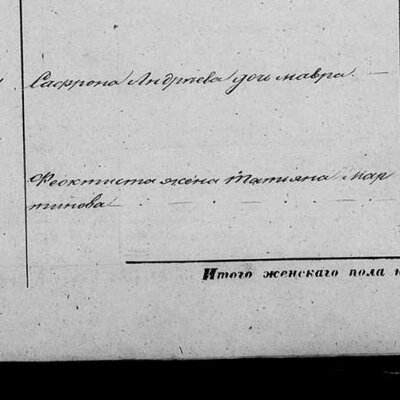 Сафрона Андреева дочь мавра
Феоктиста жена Татияна Мар
тинова
Итого женскаго пола н